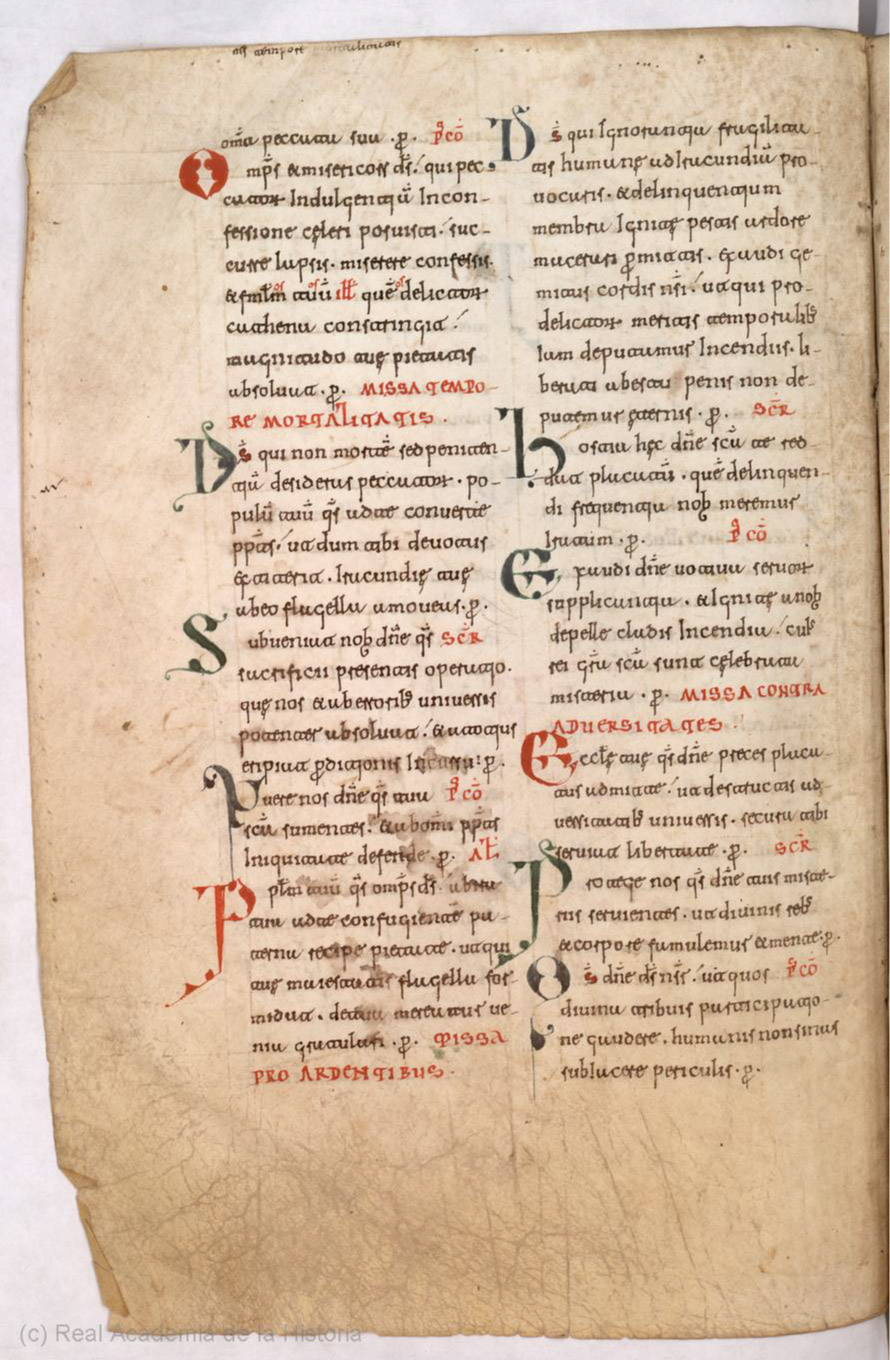 omīa peccata sua · p̱. p̊cō
Omp̄s & misericors ds̄. qui pec-
catorꝝ Indulgentiā Incon-
fessione celeri posuisti. suc-
curre lapsis. miserere confessis.
& fmłm tuū ill quē delictorꝝ
cathena constringit.
magnitudo tuę pietatis
absoluat. p̱. MISSA TEMPO-
RE MORTALITATIS.
Ds̄ qui non mortē sed peniten-
tiā desideras peccatorꝝ. po-
pulū tuū qs̄ ad te convertē
pp̄ts. ut dum tibi devotus
extiterit. Iracundię tuę
ab eo flagella amoveas. p̱.
Subveniat nob dn̄e qs̄ SCR̄
sacrificii presentis operatio.
quę nos & ab erroribꝰ universis
potenter absolvat. & a totius
eripiat p̱ditionis Incursu. p̱.
Tuere nos dn̄e qs̄ tua p̊cō
scā sumentes. & ab omī pp̄ts
Iniquitate defende. p̱. AL̄
Pplm̄ tuū qs̄ omp̄s ds̄. ab ira
tua ad te confugientē pa-
terna recipe pietate. ut qui
tuę maiestatis flagella for-
midat. de tua mereatur ve-
nia gratulari. p̱. MISSA
PRO ARDENTIBUS.
Ds̄ qui Ignorantia fragilita-
tis humanę ad Iracundiā pro-
vocaris. & delinquentium
membra Ignitę pestis ardore
macerari p̱mittis. exaudi ge-
mitus cordis nr̄i. ut qui pro-
delictorꝝ meritis temporalibꝰ
Iam deputamur Incendiis. li-
berati ab estu penis non de-
putemur ęternis. p̱. SCR̄
hostia hęc dn̄e scā te red-
dat placatū. quē delinquen-
di frequentia nob meremur
Iratum. p̱. p̊cō
Exaudi dn̄e vota servorꝝ
supplicantia. & Ignitę a nob
depelle cladis Incendia. cuiꝰ
rei gr̄a scā sunt cęlebrata
misteria. p̱. MISSA CONTRA
ADVERSITATES.
Eccłę tuę qs̄ dn̄e preces placa-
tus admitte. ut destructis ad-
versitatibꝰ universis. secura tibi
serviat libertate. p̱. SCR̄
Protege nos qs̄ dn̄e tuis miste-
riis servientes. ut divinis rebꝰ
& corpore famulemur & mente. p̱.
Ds̄ dn̄e ds̄ nr̄s. ut quos p̊cō
divina tribuis participatio-
ne gaudere. humanis non sinas
subIacere periculis. p̱.
(c) Real Academia de la Historia